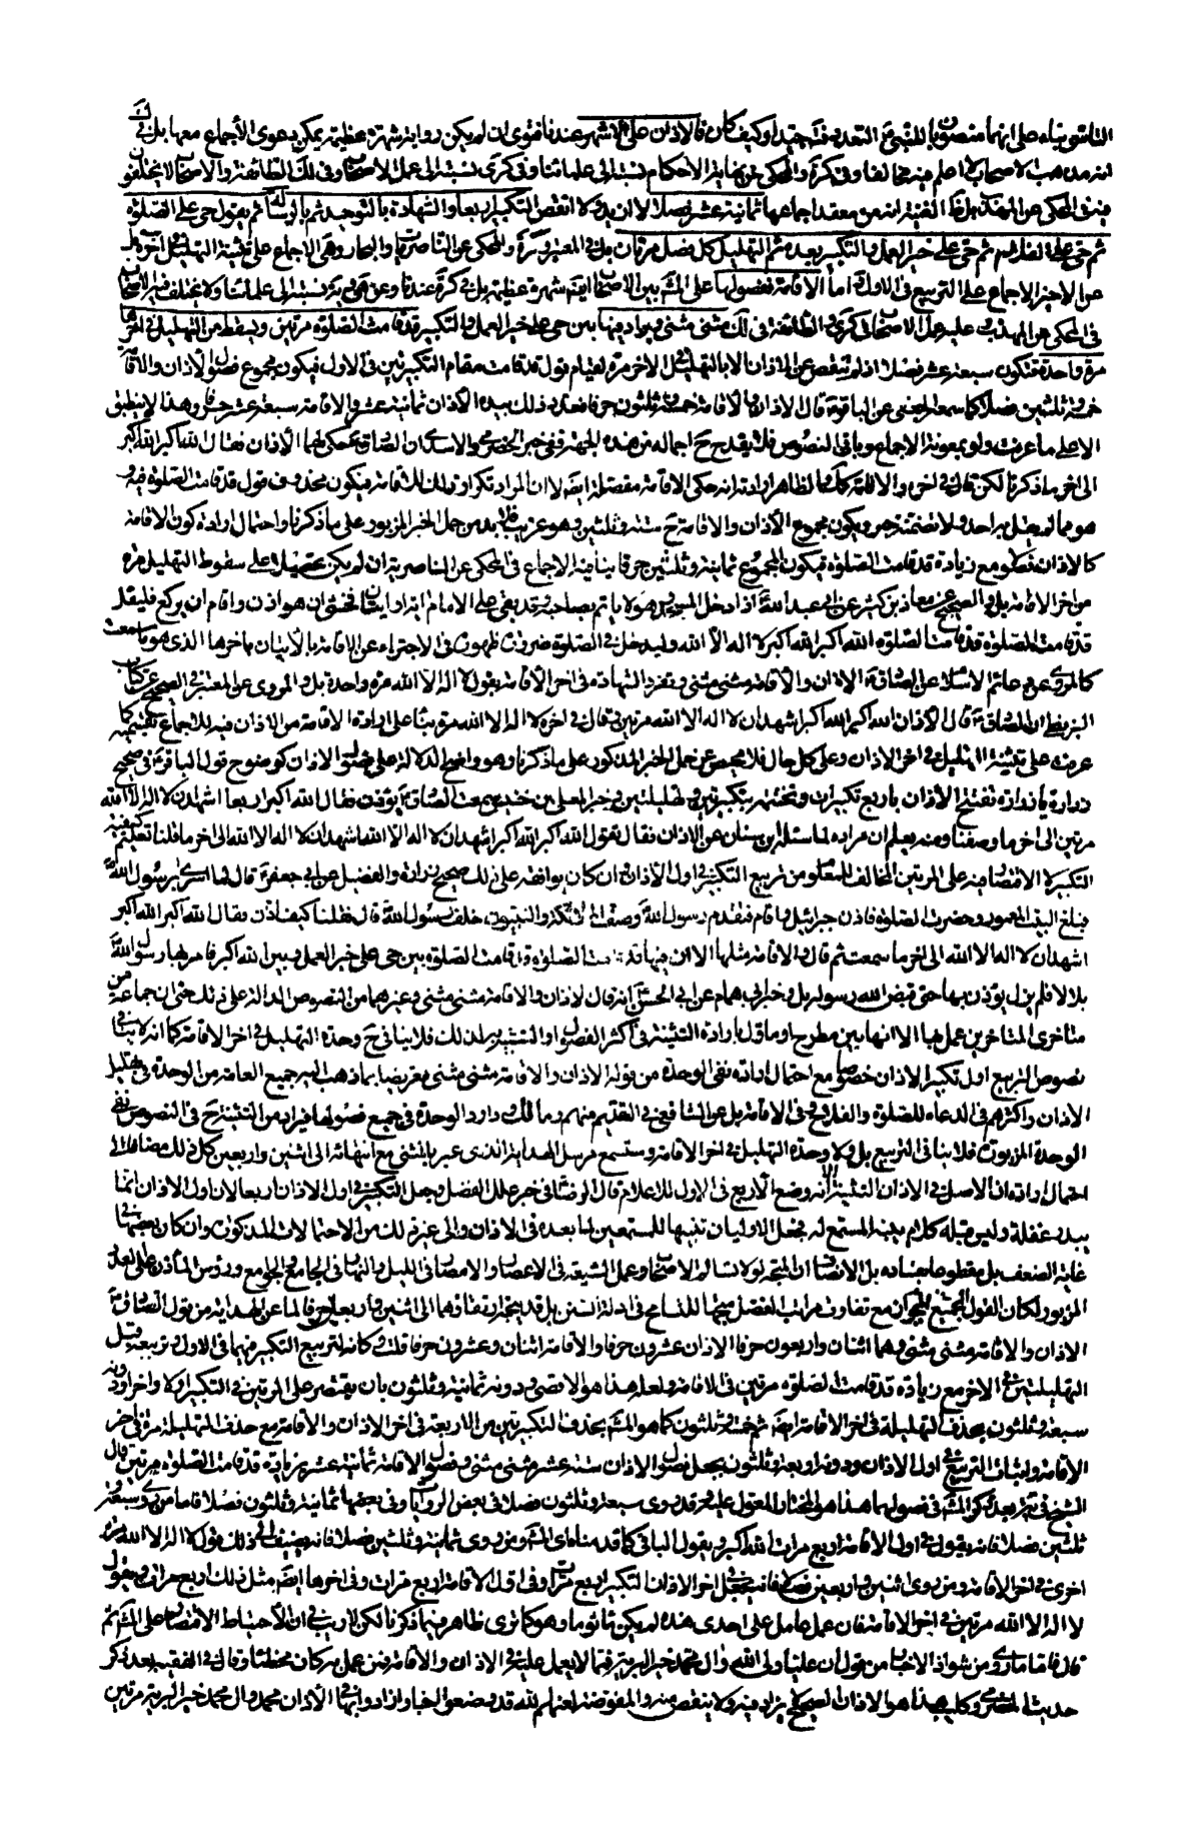 الناشئ بناء على انهما منصوبا للنبي التعدية فتجد او كيف كان فالاذان على الاشهر عندنا فتوى ان لم يكن رواية شهرة عظيمة يمكن دعوى الاجماع معها بل في
انه مذهب الاصحاب لا اعلم فيه مخالفا وفي كرة والمحكي عن نهاية الاحكام نسبته الى علمائنا وفي كرى نسبته الى عمل الاصحاب وفي لك الطائفة والاصحاب لا يختلفون
فيه في المحكي عن المهذب بل ظ الغنية انه من معقد اجماعها ثمانية عشر فصلا لا ازيد ولا انقص التكبير اربعا والشهادة بالتوحيد ثم بالرسالة ثم يقول حي على الصلوة
ثم حي على الفلاح ثم حي على خير العمل والتكبير بعده ثم التهليل كل فصل مرتان بل في المعتبر وكرة والمحكي عن الناصريات والبحار وهي الاجماع على تثنية التهليل في آخره بل
عن الاخير الاجماع على التربيع في الاول اما الاقامة ففصولها على المشهور بين الاصحاب ايضا شهرة عظيمة بل في كرة عندنا وعن هي نسبته الى علمائنا ولا يختلف فيه الاصحاب
في المحكي عن المهذب وعليه عمل الاصحاب في كرى والطائفة في لك مثنى مثنى ويزاد فيها بين حي على خير العمل والتكبير قد قامت الصلوة مرتين ويسقط من التهليل في آخرها
مرة واحدة فتكون سبعة عشر فصلا اذ لم تنقص عن الاذان الا بالتهليل الاخر مرة لقيام قول قد قامت مقام التكبيرتين في الاول فيكون مجموع فصول الاذان والاقامة
خمسة وثلثين فصلا كما سمعه الجعفي عن الباقر ع قال الاذان والاقامة خمسة وثلثون حرفا فعد ذلك بيده الاذان ثمانية عشر والاقامة سبعة عشر حرفا وهذا لا ينطبق
الا على ما عرفت ولو بمعونة الاجماع وباقي النصوص فلا يقدح ح اجماله من هذه الجهة وفي خبر الحضرمي والاسدي ان الصادق ع حكى لهما الاذان فقال الله اكبر الله اكبر
الى اخر ما ذكرنا لكن قال في اخره والاقامة كك والظاهر ارادته انه حكى الاقامة مفصلة ايضا لا ان المراد تكرار ذلك للاقامة فيكون محذوف قول قد قامت الصلوة فيه و
هو مما لم يقل به احد ولا تضمنته خبر ويكون مجموع الاذان والاقامة ح ستة وثلثين وهو غريب فلا بد من حمل الخبر المزبور على ما ذكرنا واحتمال ارادة كون الاقامة
كالاذان مع زيادة قد قامت الصلوة فيكون المجموع ثمانية وثلثين حرفا ينافيه الاجماع في المحكي عن الناصرية ان لم يكن محصلا على سقوط التهليل مرة
من اخر الاقامة بل والصحيح عن معاذ بن كثير عن ابي عبد الله ع اذا دخل المسجد وهو لا يأتم بصاحبه وقد بقي على الامام اية او ايتان فخشى ان هو اذن واقام ان يركع فليقل
قد قامت الصلوة قد قامت الصلوة الله اكبر الله اكبر لا اله الا الله وليدخل في الصلوة ضرورة ظهوره في الاجتزاء عن الاقامة بالاتيان باخرها الذي هو ما سمعت
كالمروي عن دعائم الاسلام عن الصادق ع الاذان والاقامة مثنى مثنى وتفرد الشهادة في اخر الاقامة يقول لا اله الا الله مرة واحدة بل والمروي عن المعتبر في الصحيح عن كتاب
البزنطي ان الصادق ع قال الاذان الله اكبر الله اكبر اشهد ان لا اله الا الله مرتين قال في اخره لا اله الا الله مرة بناء على ارادة الاقامة من الاذان فيه للاجماع كما
عرفت على تثنية التهليل في اخر الاذان وعلى كل حال فلا محيص عن حمل الخبر المذكور على ما ذكرنا وهو واضح الدلالة على فصول الاذان كوضوح قول الباقر ع في صحيح
زرارة يا زرارة تفتتح الاذان باربع تكبيرات وتختمه بتكبيرتين وتهليلتين وخبر المعلى بن خنيس سمعت الصادق ع يؤذن فقال الله اكبر اربعا اشهد ان لا اله الا الله
مرتين الى اخر ما وصفنا ومنه يعلم ان مراده لما سئله ابن سنان عن الاذان فقال تقول الله اكبر الله اكبر اشهد ان لا اله الا الله اشهد ان لا اله الا الله الى اخر ما قلنا تعليم كيفية
التكبير لا الاقتصار منه على المرتين المخالف للمعلوم من تربيع التكبير في اول الاذان وان كان يوافقه على ذلك صحيح زرارة والفضيل عن ابي جعفر ع قال لما اسرى برسول الله ص
فبلغ البيت المعمور وحضرت الصلوة فاذن جبرائيل واقام فتقدم رسول الله ص وصف الملائكة والنبيون خلف رسول الله ص قال فقلنا كيف اذن فقال الله اكبر الله اكبر
اشهد ان لا اله الا الله الى اخر ما سمعت ثم قال والاقامة مثلها الا ان فيها قد قامت الصلوة قد قامت الصلوة بين حي على خير العمل وبين الله اكبر فامر بها رسول الله ص
بلالا فلم يزل يؤذن بها حتى قبض الله رسوله بل وخبر ابي همام عن ابي الحسن ع انه قال الاذان والاقامة مثنى مثنى وغيرهما من النصوص الدالة على ذلك حتى ان جماعة من
متاخري المتاخرين عمل بها الا انها بين مطرح او ماول بارادة التثنية في اكثر الفصول او التشبيه لذلك فلا ينافي ح وحدة التهليل في اخر الاقامة كما انه لا ينافي
نصوص التربيع اول تكبير الاذان خصوصا مع احتمال ارادة نفي الوحدة من قوله الاذان والاقامة مثنى مثنى تعريضا بما ذهب اليه جميع العامة من الوحدة في تهليل
الاذان واكثرهم في الدعاء للصلوة والفلاح وفي الاقامة بل عن الشافعي في القديم منهم ومالك وداود الوحدة في جميع فصولها فيراد من التثنية ح في النصوص نفي
الوحدة المزبورة فلا ينافي التربيع بل ولا وحدة التهليل في اخر الاقامة وستسمع مرسل الهداية الذي عبر بالمثنى مع انتهائه الى اثنين واربعين كل ذلك مضافا الى
احتمال ارادة ان الاصل في الاذان التثنية الا انه وضع الاربع في الاول للاعلام قال الرضا ع في خبر علل الفضل وجعل التكبير في اول الاذان اربعا لان اول الاذان انما
يبدء غفلة وليس قبله كلام ينبه المستمع له فجعل الاوليان تنبيها للمستمعين لما بعده في الاذان والى غير ذلك من الاحتمالات المذكورة وان كان بعضها في
غاية الضعف بل مقطوعا بفساده بل الانصاف ان المتجه لولا تسالم الاصحاب وعمل الشيعة في الاعصار والامصار في الليل والنهار في المجامع والجوامع ورؤس المأذن على العدد
المزبور لكان القول بالجميع مع تفاوت مراتب الفضل سيما للتسامح في ادلة السنن بل قد يتجه ارتقاؤهما الى اثنين واربعين حرفا لما عن الهداية من قول الصادق ع
الاذان والاقامة مثنى مثنى وهما اثنان واربعون حرفا الاذان عشرون حرفا والاقامة اثنان وعشرون حرفا قلت كانه لتربيع التكبير فيهما في الاول وتربيعه قبل
التهليلتين في الاخر مع زيادة قد قامت الصلوة مرتين في الاقامة ولعل هذا هو الاقصى ودونه ثمانية وثلثون بان يقتصر على المرتين في التكبير اولا واخرا ودونه
سبعة وثلثون بحذف التهليلة في اخر الاقامة ايضا ثم خمسة وثلثون كما هو المشهور بحذف التكبيرتين من الاربعة في اخر الاذان والاقامة مع حذف التهليلة مرة في اخر
الاقامة واثبات التربيع في اول الاذان ودونه اربعة وثلثون بجعل فصول الاذان ستة عشر مثنى مثنى وفصول الاقامة ثمانية عشر بزيادة قد قامت الصلوة مرتين قال
الشيخ في يه بعد ذكر المشهور في فصولهما هذا هو المختار المعول عليه وقد روى سبعة وثلثون فصلا في بعض الروايات وفي بعضها ثمانية وثلثون فصلا فاما من روى سبعة و
ثلثين فصلا فانه يقول في اول الاقامة اربع مرات الله اكبر ويقول الباقي كما قدمناه اي المشهور ومن روى ثمانية وثلثين فصلا فانه يضيف الى ذلك قول لا اله الا الله مرة
اخرى في اخر الاقامة ومن روى اثنين واربعين فصلا فانه يجعل في اخر الاذان التكبير اربع مرات وفي اول الاقامة اربع مرات وفي اخرها ايضا مثل ذلك اربع مرات ويقول
لا اله الا الله مرتين في اخر الاقامة فان عمل عامل على احدى هذه لم يكن مأثوما وهو كما ترى ظاهر فيما ذكرنا لكن لا ريب في ان الاحتياط الاقتصار على المشهور ثم
قال فاما ما روى من شواذ الاخبار من قول ان عليا ولي الله وال محمد خير البرية فمما لا يعمل عليه في الاذان والاقامة فمن عمل به كان مخطئا وقال في الفقيه بعد ذكر
حديث الحضرمي وكليب هذا هو الاذان الصحيح لا يزاد فيه ولا ينقص منه والمفوضة لعنهم الله قد وضعوا اخبارا وزادوا بها في الاذان محمد وال محمد خير البرية مرتين